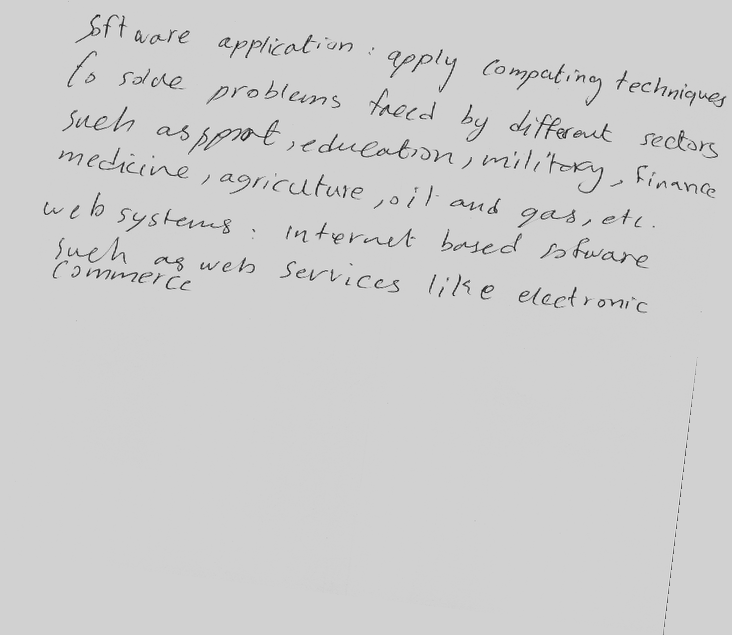 Software application : apply Computing techniques
to solve problems faced by different sectors
such as sport, education, military, finance
medicine, agriculture, oil and gas, etc.
web systems : internet based sofware
such as web services like electronic
Commerce